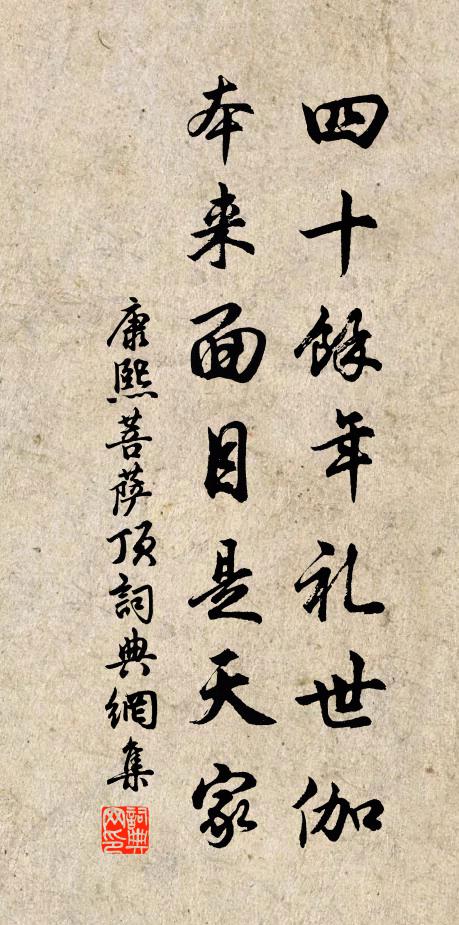 四十餘年礼世伽
本来面目是天家
康熙菩萨顶詞典網集
詞典网印